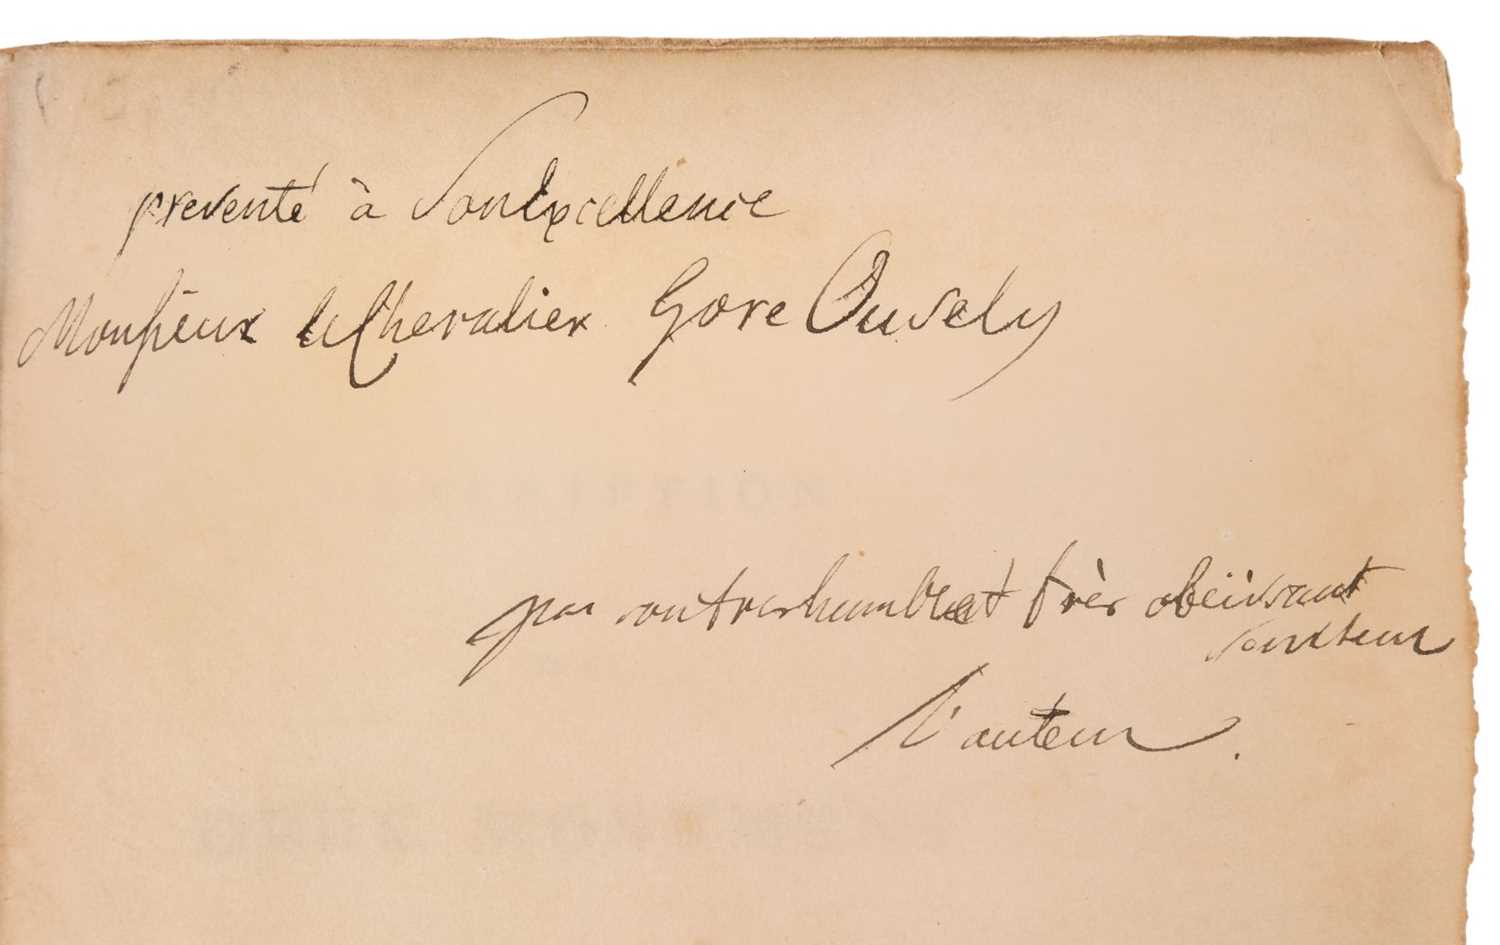 presenté à Son Excellence
Monsieur le Chevalier Gore Ousely
par son tres humble et très obeïssant
serviteur
l'auteur.